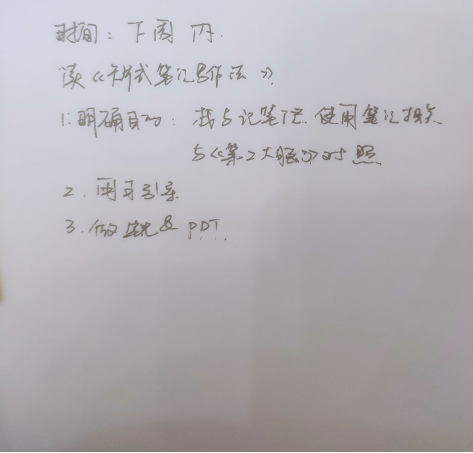 时间：下周内.
读《卡片式笔记写作法》.
1.明确目的：找与记笔记、使用笔记相关
与《第2大脑》对照
2. 用于引导
3. 做 & PDT.